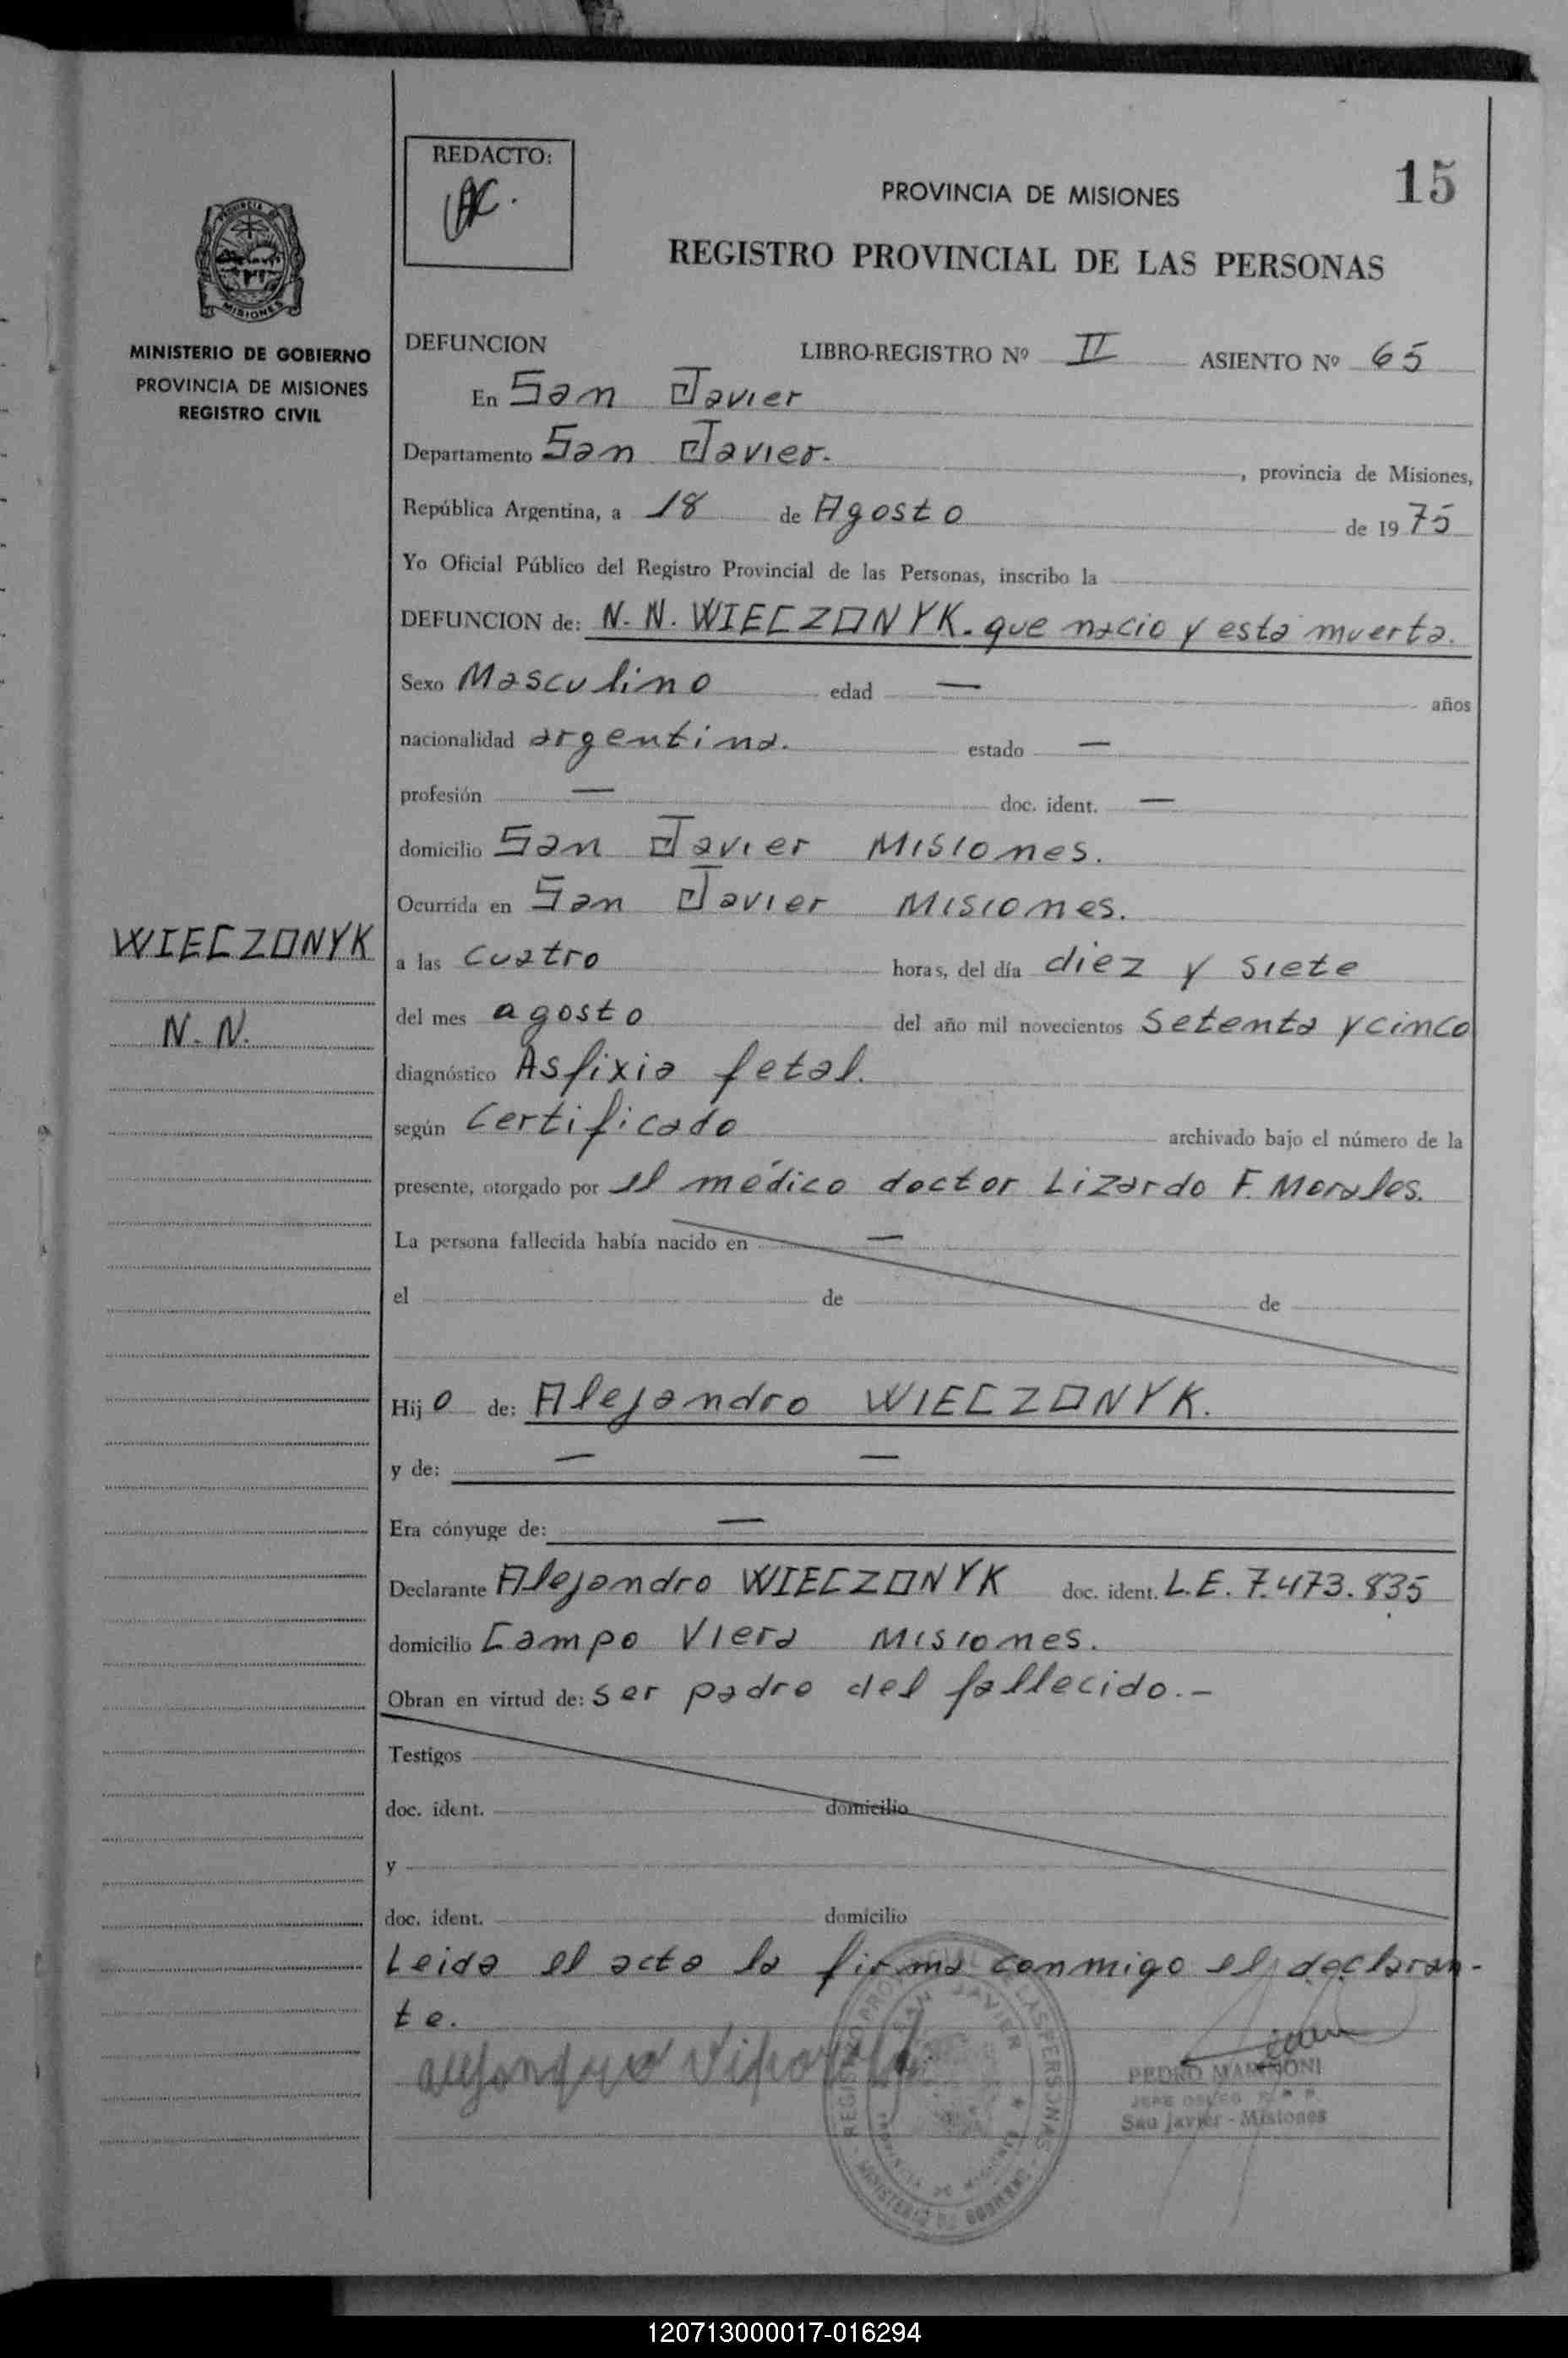 REDACTO:
15
PROVINCIA DE MISIONES
REGISTRO PROVINCIAL DE LAS PERSONAS
MISIONES
MINISTERIO DE GOBIERNO
PROVINCIA DE MISIONES
REGISTRO CIVIL
DEFUNCION LIBRO-REGISTRO Nº II ASIENTO Nº 65
En San Javier
Departamento San Javier. , provincia de Misiones,
República Argentina, a 18 de Agosto de 1975
Yo Oficial Público del Registro Provincial de las Personas, inscribo la
DEFUNCION de: N. N. WIECZONYK. que nacio y esta muerta.
Sexo Masculino edad — años
nacionalidad argentina. estado —
profesión — doc. ident. —
domicilio San Javier Misiones.
Ocurrida en San Javier Misiones.
WIECZONYK
N. N.
a las cuatro horas, del día diez y siete
del mes agosto del año mil novecientos setenta y cinco
diagnóstico Asfixia fetal.
según Certificado archivado bajo el número de la
presente, otorgado por el médico doctor Lizardo F. Morales.
La persona fallecida había nacido en —
el de de
Hijo de: Alejandro WIECZONYK.
y de: — —
Era cónyuge de: —
Declarante Alejandro WIECZONYK doc. ident. L.E. 7.473.835
domicilio Campo Viera Misiones.
Obran en virtud de: ser padre del fallecido.-
Testigos
doc. ident. domicilio
y
doc. ident. domicilio
Leida el acta la firma conmigo el declaran-
te.
SAN JAVIER
PEDRO
San Javier - Misiones
120713000017-016294